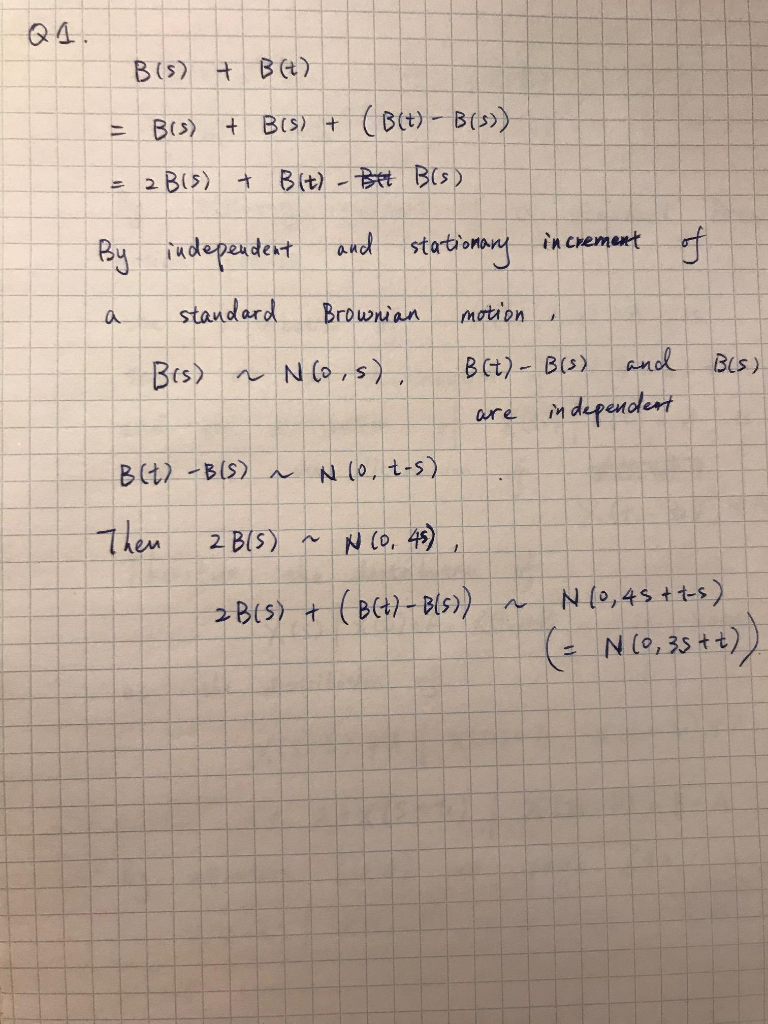 Q1.
B(s) + B(t)
= B(s) + B(s) + (B(t) - B(s))
= 2B(s) + B(t) - B(s)
By independent and stationary increment of
a standard Brownian motion,
B(s) ~ N(0,s), B(t) - B(s) and B(s)
are independent
B(t) - B(s) ~ N(0, t-s)
Then 2B(s) ~ N(0, 4s),
2B(s) + (B(t) - B(s)) ~ N(0, 4s + t-s)
(= N(0, 3s + t))